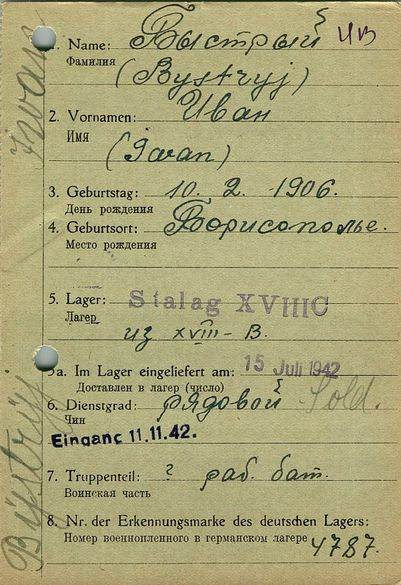 1. Name: Быстрый ИВ
Фамилия
(Bystryj)
2. Vornamen: Иван
Имя
(Iwan)
3. Geburtstag: 10. 2. 1906.
День рождения
4. Geburtsort: Борисополье.
Место рождения
5. Lager: Stalag XVIIIC
Лагерь
из XVIII-B.
5a. Im Lager eingeliefert am: 15 Juli 1942
Доставлен в лагерь (число)
6. Dienstgrad: рядовой Sold.
Чин
Eingang 11.11.42.
7. Truppenteil: ? раб. бат.
Воинская часть
8. Nr. der Erkennungsmarke des deutschen Lagers:
Номер военнопленного в германском лагере 4787.
Bystryj
Iwan